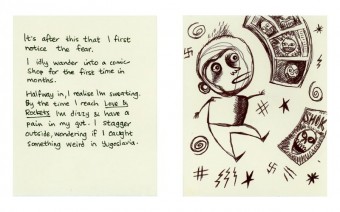 It's after this that I first
notice the fear.
I idly wander into a comic
shop for the first time in
months.
Halfway in, I realise I'm sweating.
By the time I reach Love &
Rockets I'm dizzy & have a
pain in my gut. I stagger
outside, wondering if I caught
something weird in Yugoslavia.
SHOK